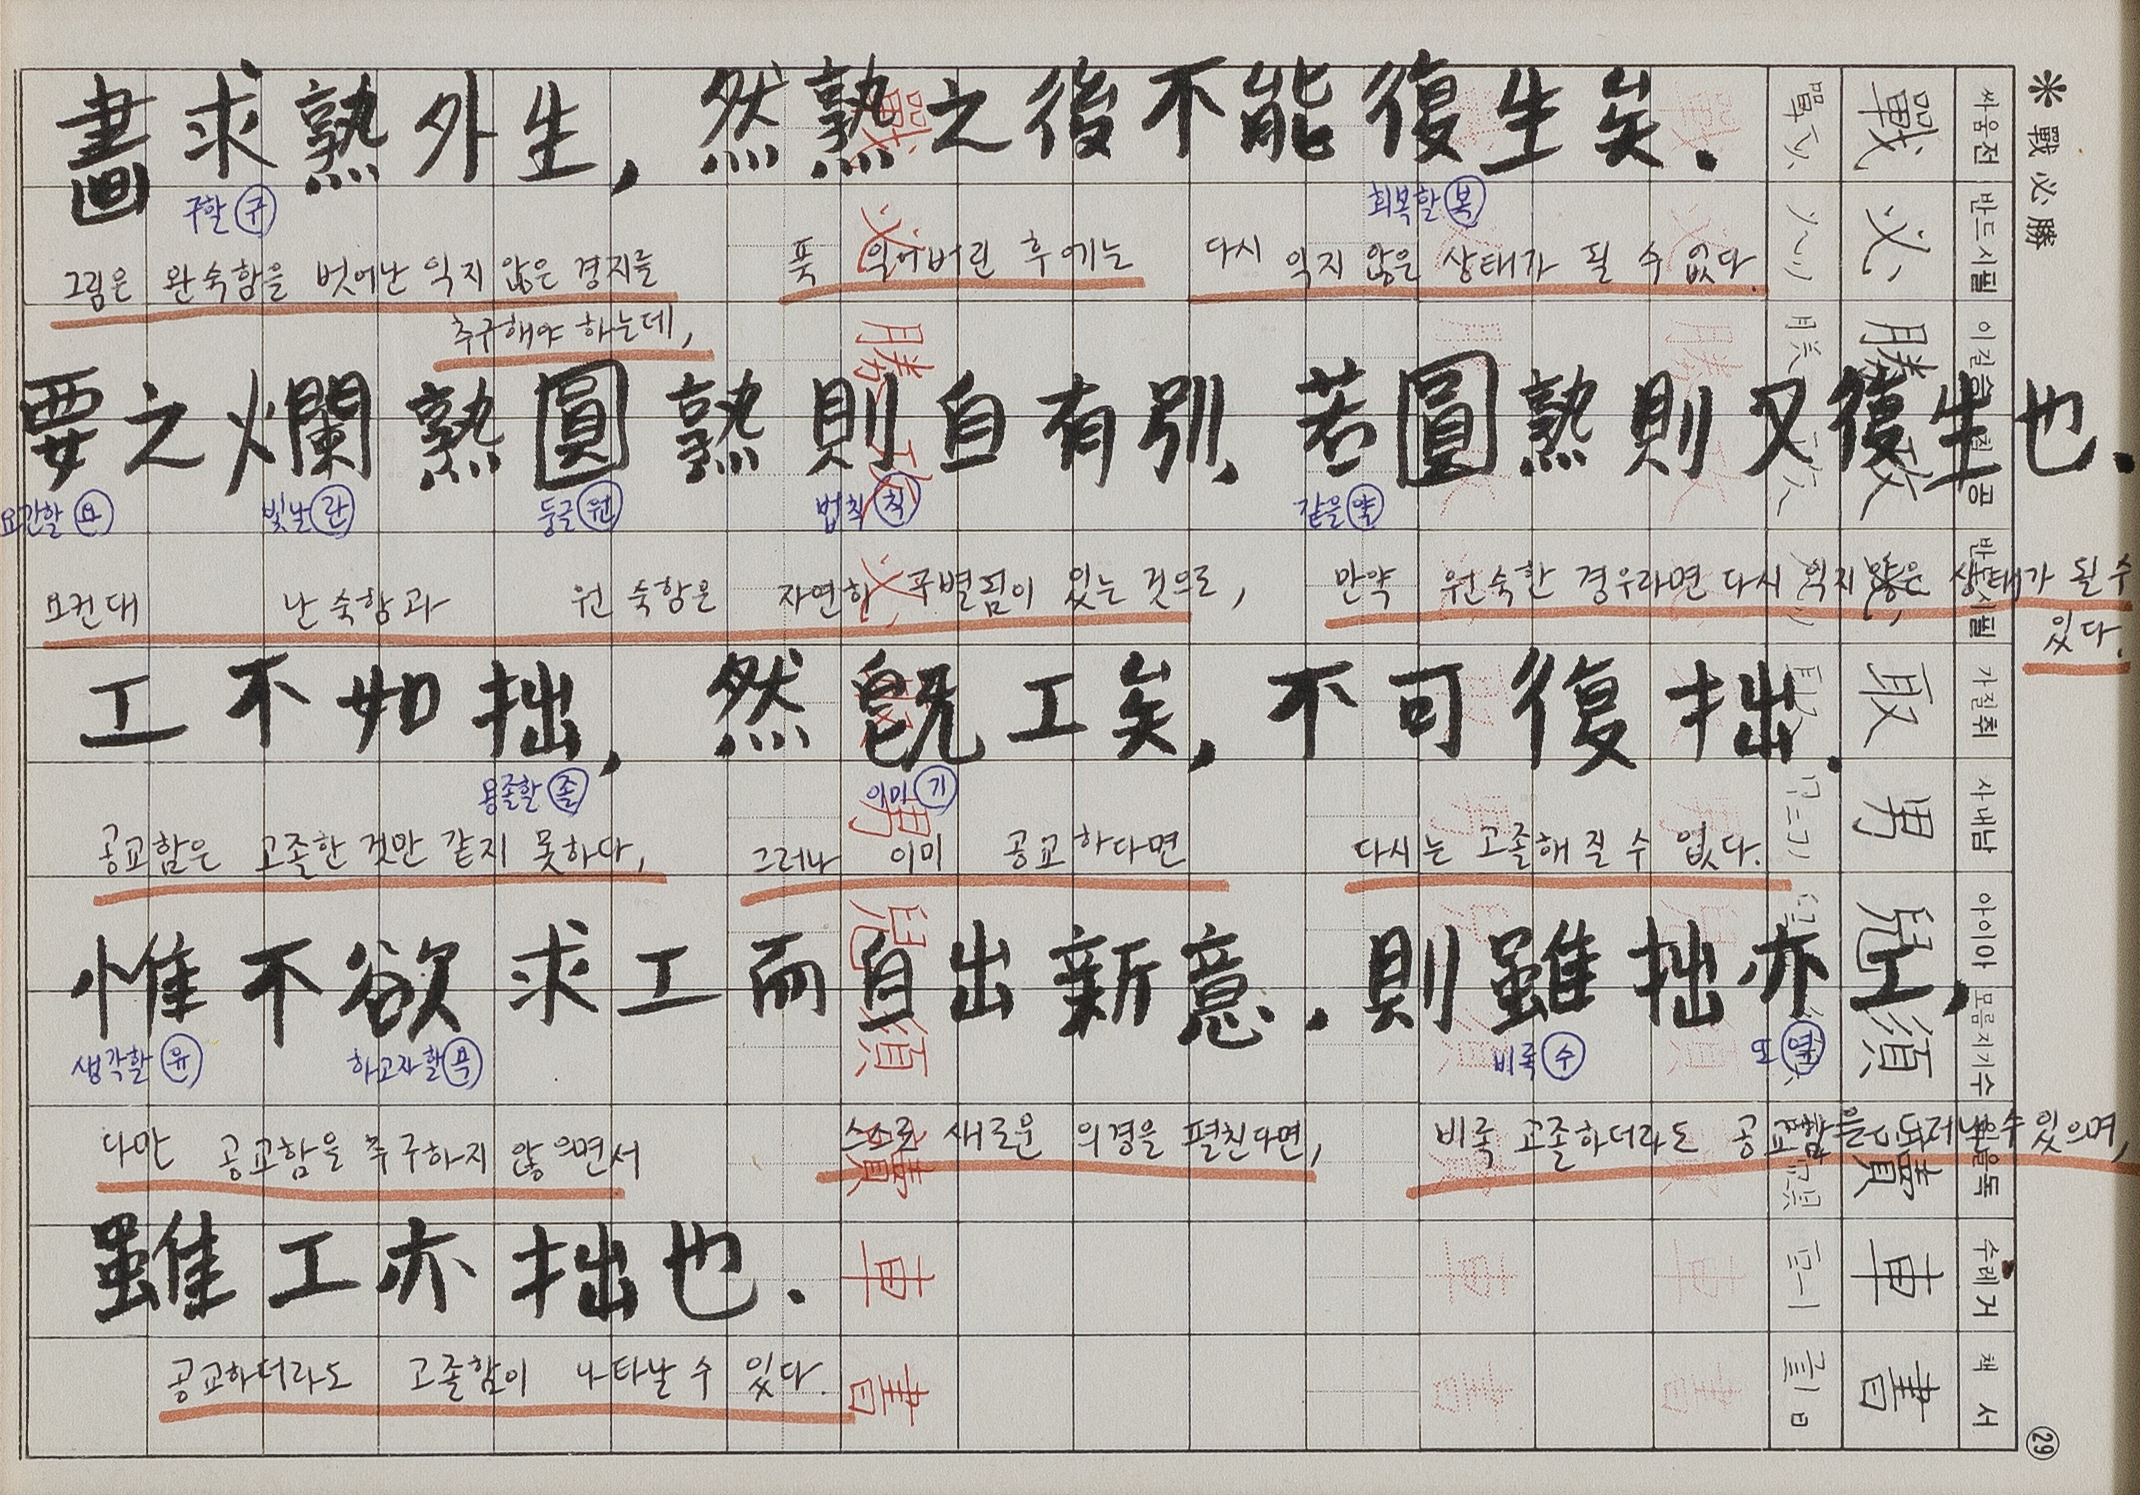 畵求熟外生, 然熟之後不能復生矣.
구할 구 회복할 복
그림은 완숙함을 벗어난 익지 않은 경지를 푹 익어버린 후에는 다시 익지 않은 상태가 될 수 없다.
추구해야 하는데,
要之爛熟圓熟則自有別, 若圓熟則又復生也.
요긴할 요 빛날 란 둥글 원 법칙 칙 같을 약
요컨대 난숙함과 원숙함은 자연히 구별됨이 있는 것으로, 만약 원숙한 경우라면 다시 익지 않은 상태가 될 수
있다.
工不如拙, 然旣工矣, 不可復拙.
용졸할 졸 이미 기
공교함은 고졸한 것만 같지 못하다, 그러나 이미 공교하다면 다시는 고졸해 질 수 없다.
惟不欲求工而自出新意, 則雖拙亦工,
생각할 유 하고자할 욕 비록 수 또 역
다만 공교함을 추구하지 않으면서 스스로 새로운 의경을 펼친다면, 비록 고졸하더라도 공교함 수 있으며,
雖工亦拙也.
공교하더라도 고졸함이 나타날 수 있다.
※ 戰必勝
싸움전 반드시필 이길승 공 반드시필 가질취 사내남 아이아 모름지기수 읽을독 수레거 책서
戰必勝攻必取 男兒須讀車書
戰必勝攻必取 男兒須讀車書
29